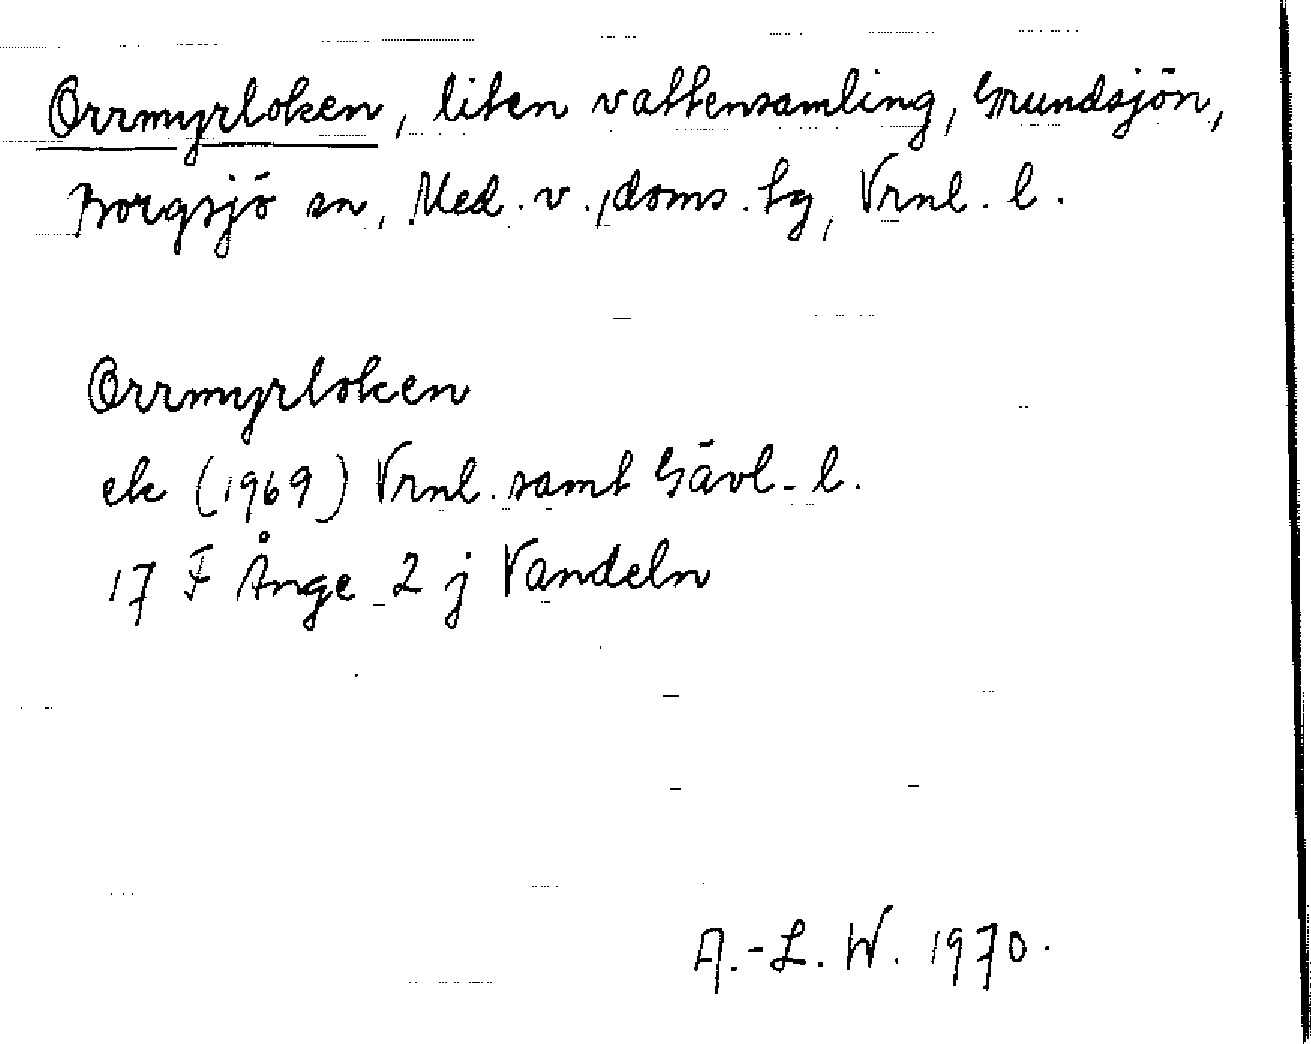 Orrmyrloken, liten vattensamling, Grundsjön,
Borgsjö sn, Med. v. doms. tg, Vrnl. l.
Orrmyrloken
ek (1969) Vrnl. samt Gävl. l.
17 F Ånge 2 j Vandeln
A.-L. W. 1970.